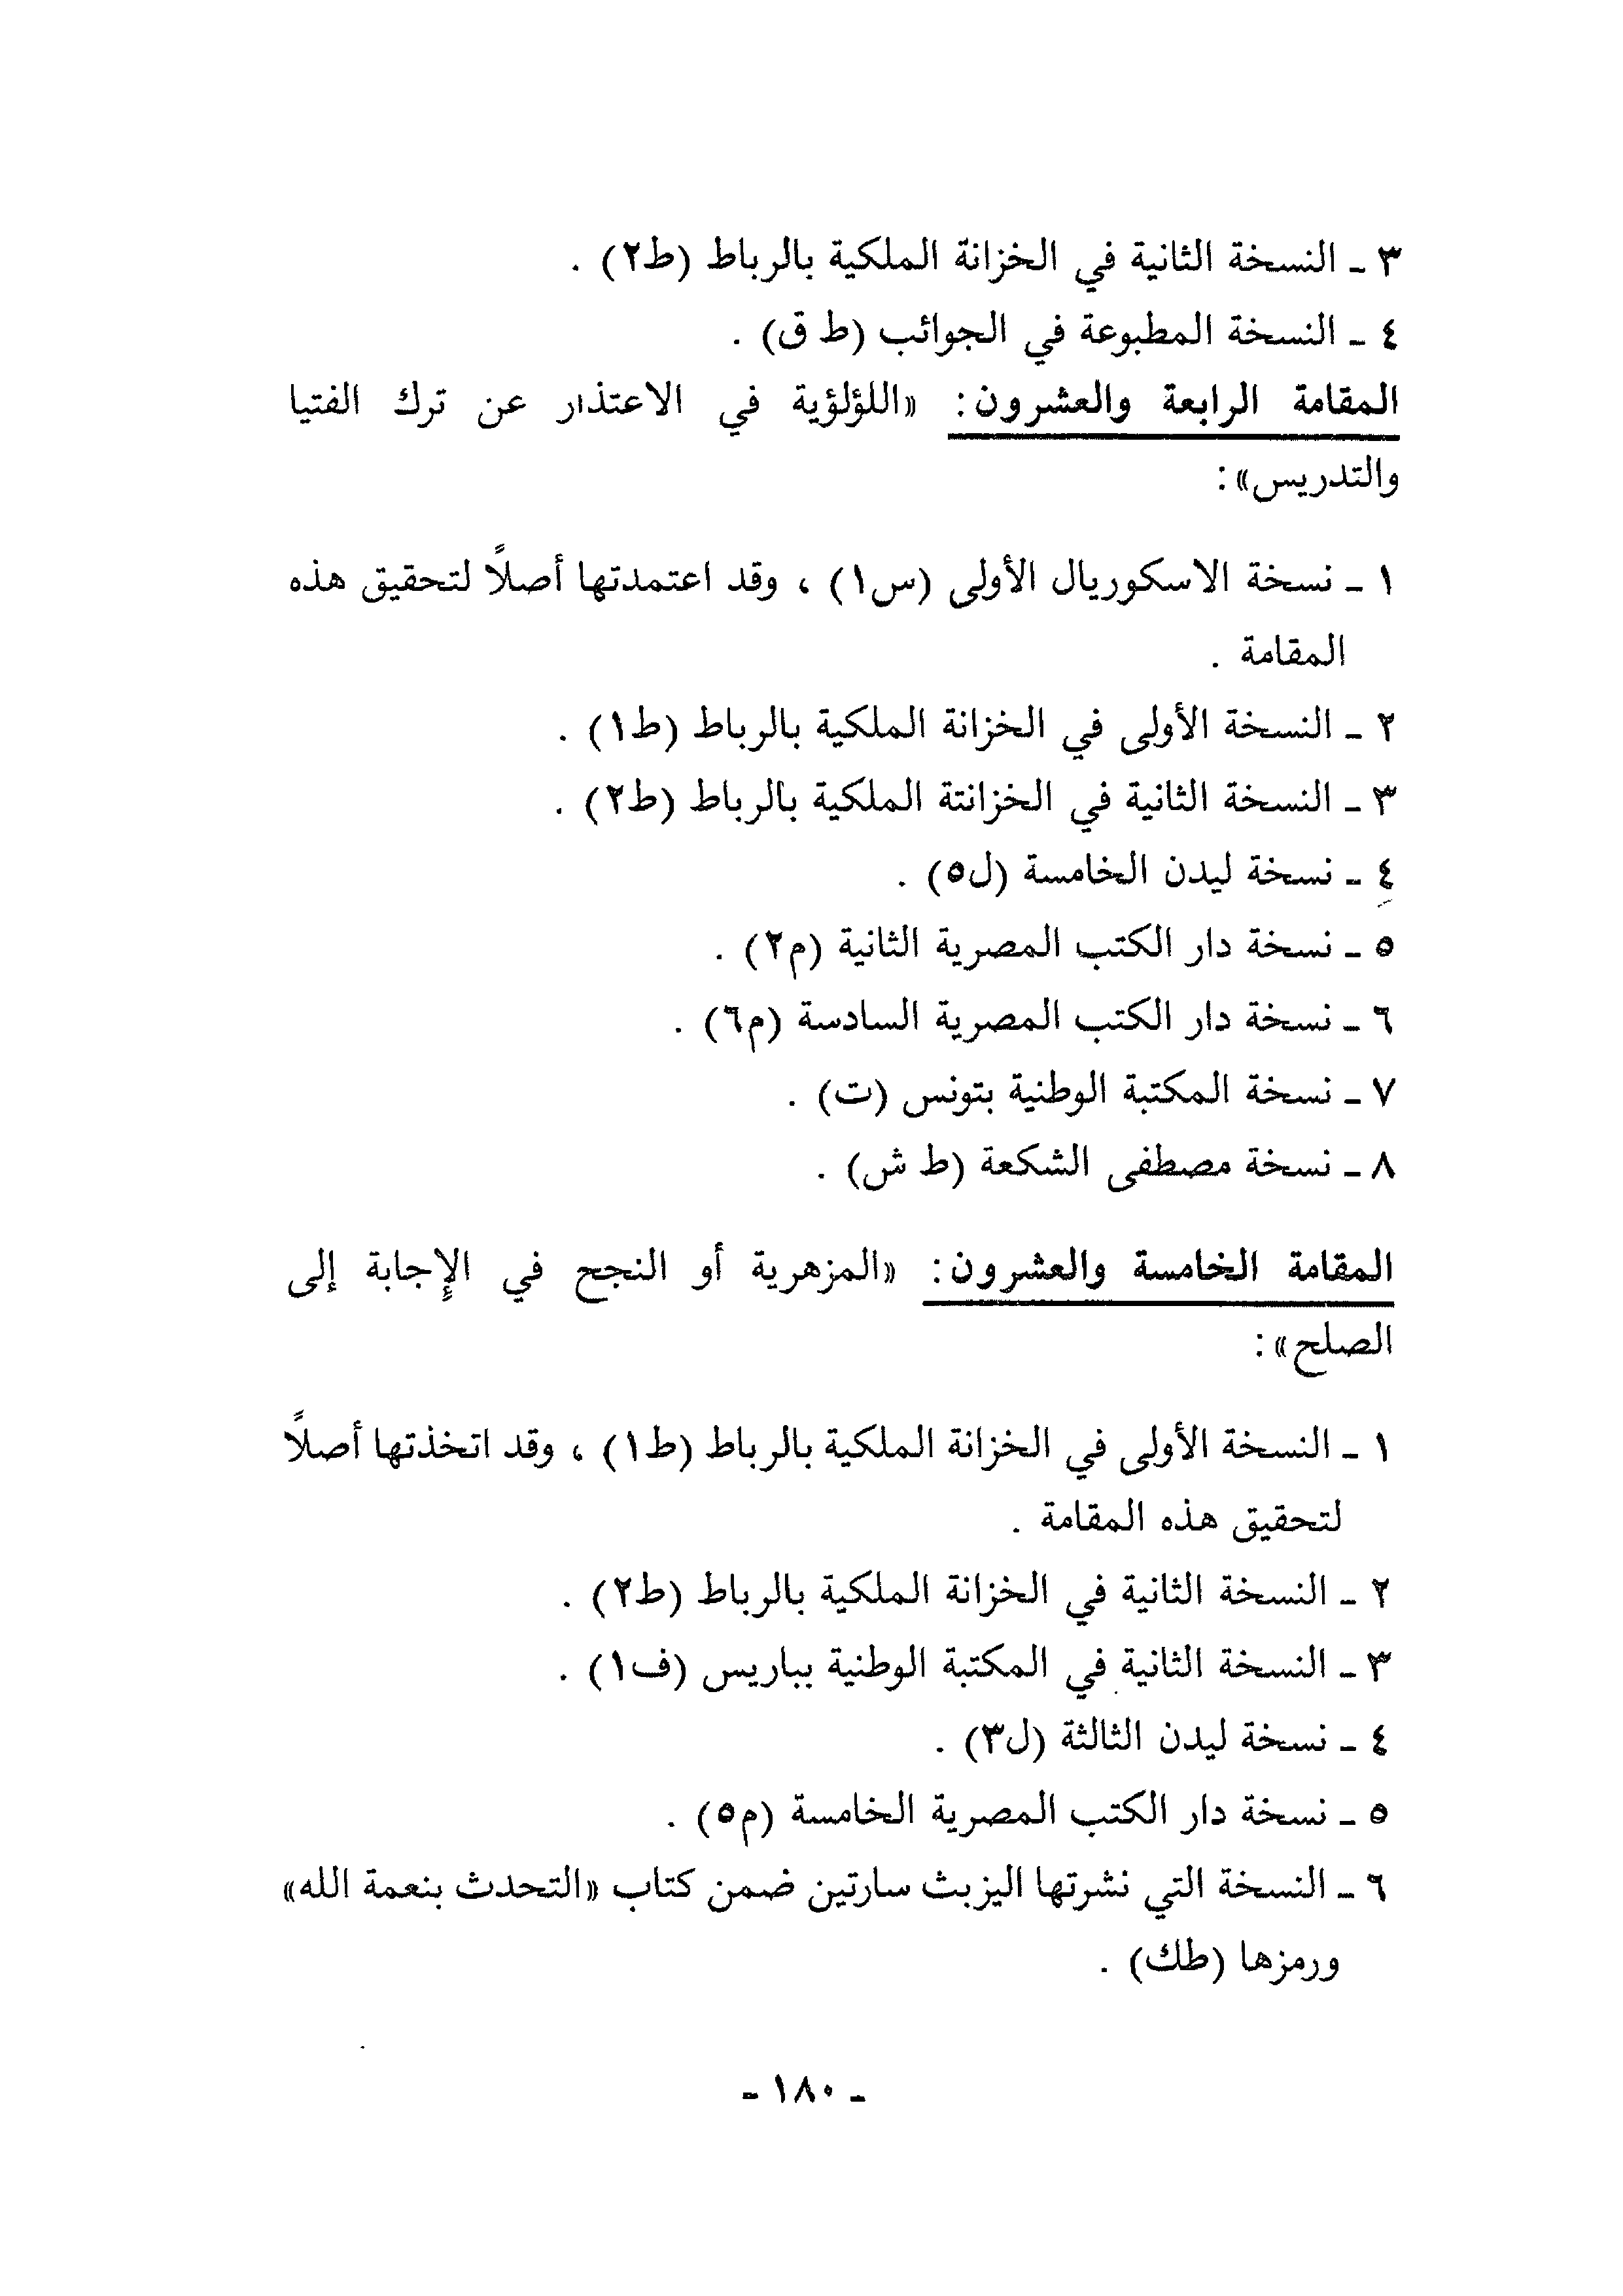 ٣ ـ النسخة الثانية في الخزانة الملكية بالرباط (ط٢) .
٤ ـ النسخة المطبوعة في الجوائب (ط ق) .
المقامة الرابعة والعشرون: «اللؤلؤية في الاعتذار عن ترك الفتيا
والتدريس»:
١ ـ نسخة الاسكوريال الأولى (س١) ، وقد اعتمدتها أصلاً لتحقيق هذه
المقامة .
٢ ـ النسخة الأولى في الخزانة الملكية بالرباط (ط١) .
٣ ـ النسخة الثانية في الخزانتة الملكية بالرباط (ط٢) .
٤ ـ نسخة ليدن الخامسة (ل٥) .
٥ ـ نسخة دار الكتب المصرية الثانية (م٢) .
٦ ـ نسخة دار الكتب المصرية السادسة (م٦) .
٧ ـ نسخة المكتبة الوطنية بتونس (ت) .
٨ ـ نسخة مصطفى الشكعة (ط ش) .
المقامة الخامسة والعشرون: «المزهرية أو النجح في الإجابة إلى
الصلح»:
١ ـ النسخة الأولى في الخزانة الملكية بالرباط (ط١) ، وقد اتخذتها أصلاً
لتحقيق هذه المقامة .
٢ ـ النسخة الثانية في الخزانة الملكية بالرباط (ط٢) .
٣ ـ النسخة الثانية في المكتبة الوطنية بباريس (ف١) .
٤ ـ نسخة ليدن الثالثة (ل٣) .
٥ ـ نسخة دار الكتب المصرية الخامسة (م٥) .
٦ ـ النسخة التي نشرتها اليزبث سارتين ضمن كتاب «التحدث بنعمة الله»
ورمزها (طك) .
ـ ١٨٠ ـ